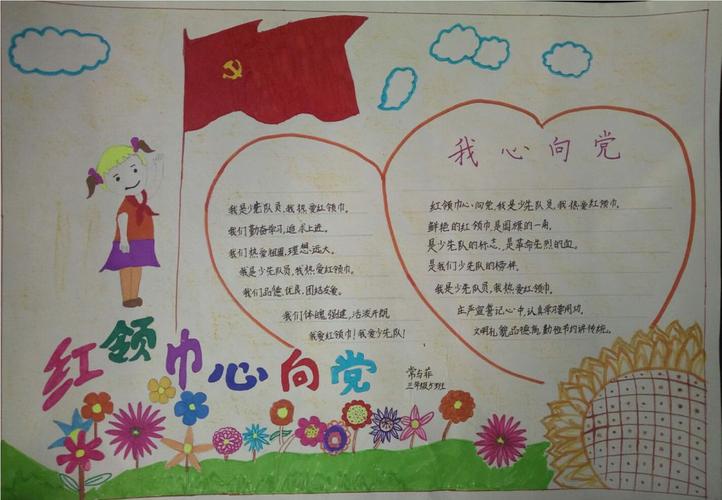 我是少先队员,我热爱红领巾。
我们勤奋学习,追求上进。
我们热爱祖国,理想远大。
我是少先队员,我热爱红领巾。
我们品德优良,团结友爱。
我们体魄强健,活泼开朗
我爱红领巾!我爱少先队!
我心向党
红领巾心向党,我是少先队员,我热爱红领巾。
鲜艳的红领巾是国旗的一角,
是少先队的标志,是革命先烈的血。
是我们少先队的榜样。
我是少先队员,我热爱红领巾。
庄严宣誓记心中,认真学习要用功,
文明礼貌品德高,勤俭节约讲传统。
红领巾心向党
常与菲
三年级5班